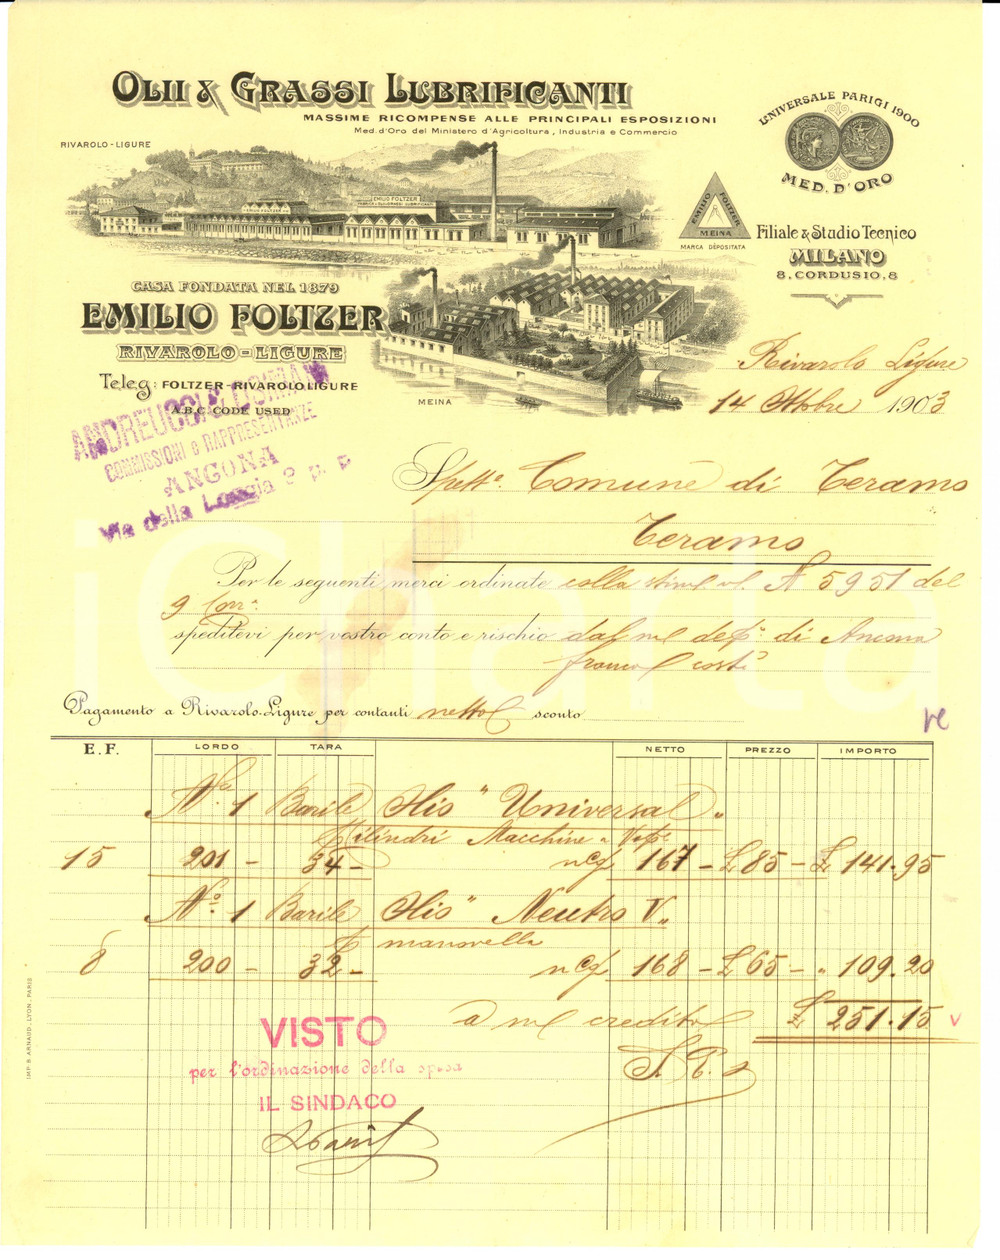 OLII & GRASSI LUBRIFICANTI
MASSIME RICOMPENSE ALLE PRINCIPALI ESPOSIZIONI
Med. d'Oro del Ministero d'Agricoltura, Industria e Commercio
UNIVERSALE PARIGI 1900
MED. D'ORO
RIVAROLO-LIGURE
EMILIO FOLTZER
EMILIO FOLTZER
MEINA
MARCA DEPOSITATA
Filiale & Studio Tecnico
MILANO
8, CORDUSIO, 8
CASA FONDATA NEL 1879
EMILIO FOLTZER
RIVAROLO-LIGURE
Teleg: FOLTZER-RIVAROLOLIGURE
A.B.C. CODE USED
MEINA
Rivarolo Ligure
14 Ottobre 1903
ANDREUCCI & ROMANI
COMMISSIONI e RAPPRESENTANZE
ANCONA
Via della Loggia 2 p. p
Spett.e Comune di Teramo
Teramo
Per le seguenti merci ordinate colla stim. vl. N 5951 del
9 Corr.
speditevi per vostro conto e rischio dal nel dep.º di Ancona
franco costì
Pagamento a Rivarolo-Ligure per contanti netto sconto
ve
E.F. LORDO TARA NETTO PREZZO IMPORTO
N. 1 Barile Olio "Universal"
Cilindri Macchine
15 201 - 34 - 167 - £ 85 - £ 141.95
N.º 1 Barile Olio "Neutro V"
manovella
8 200 - 32 - 168 - £ 65 - " 109.20
a nel credito £ 251.15 v
VISTO
per l'ordinazione della spesa
IL SINDACO
IMP. B. ARNAUD, LYON-PARIS
iCharta